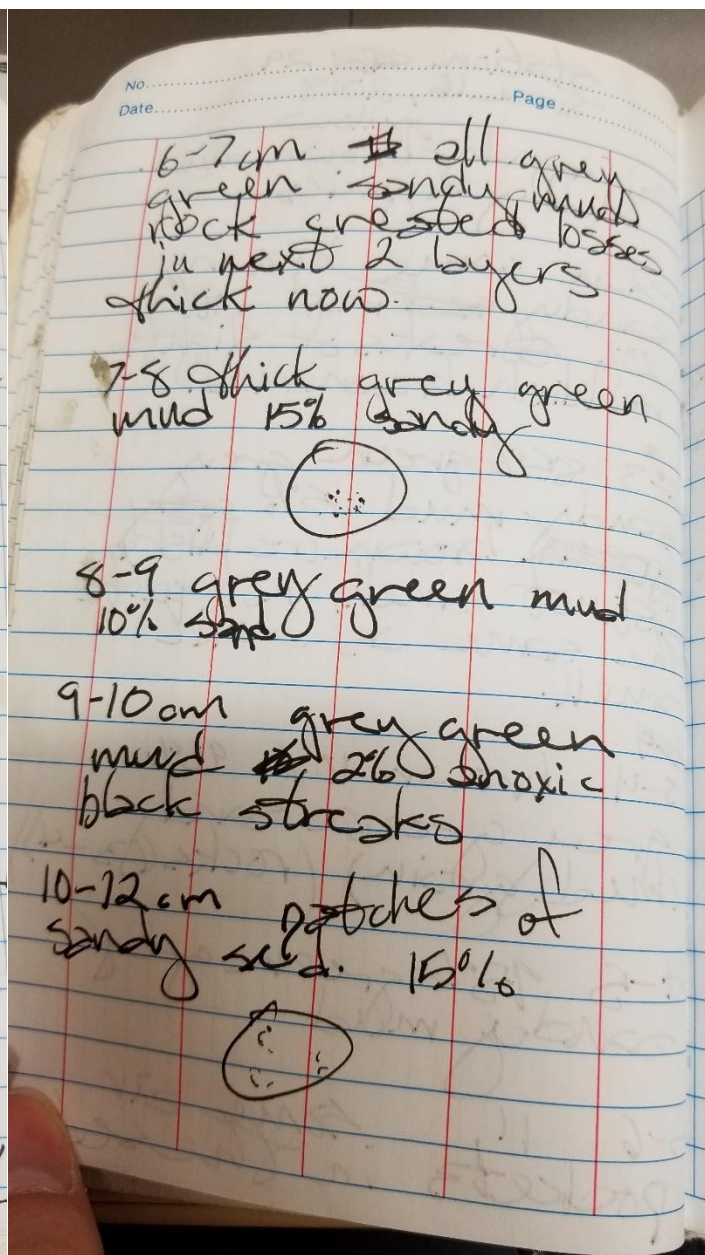 No.
Date
Page
6-7cm all grey
green sandy mud
rock created losses
in next 2 layers
thick now.
7-8 thick grey green
mud 15% sandy
8-9 grey green mud
10% sand
9-10 cm grey green
mud 2% anoxic
black streaks
10-12 cm patches of
sandy sed. 15%